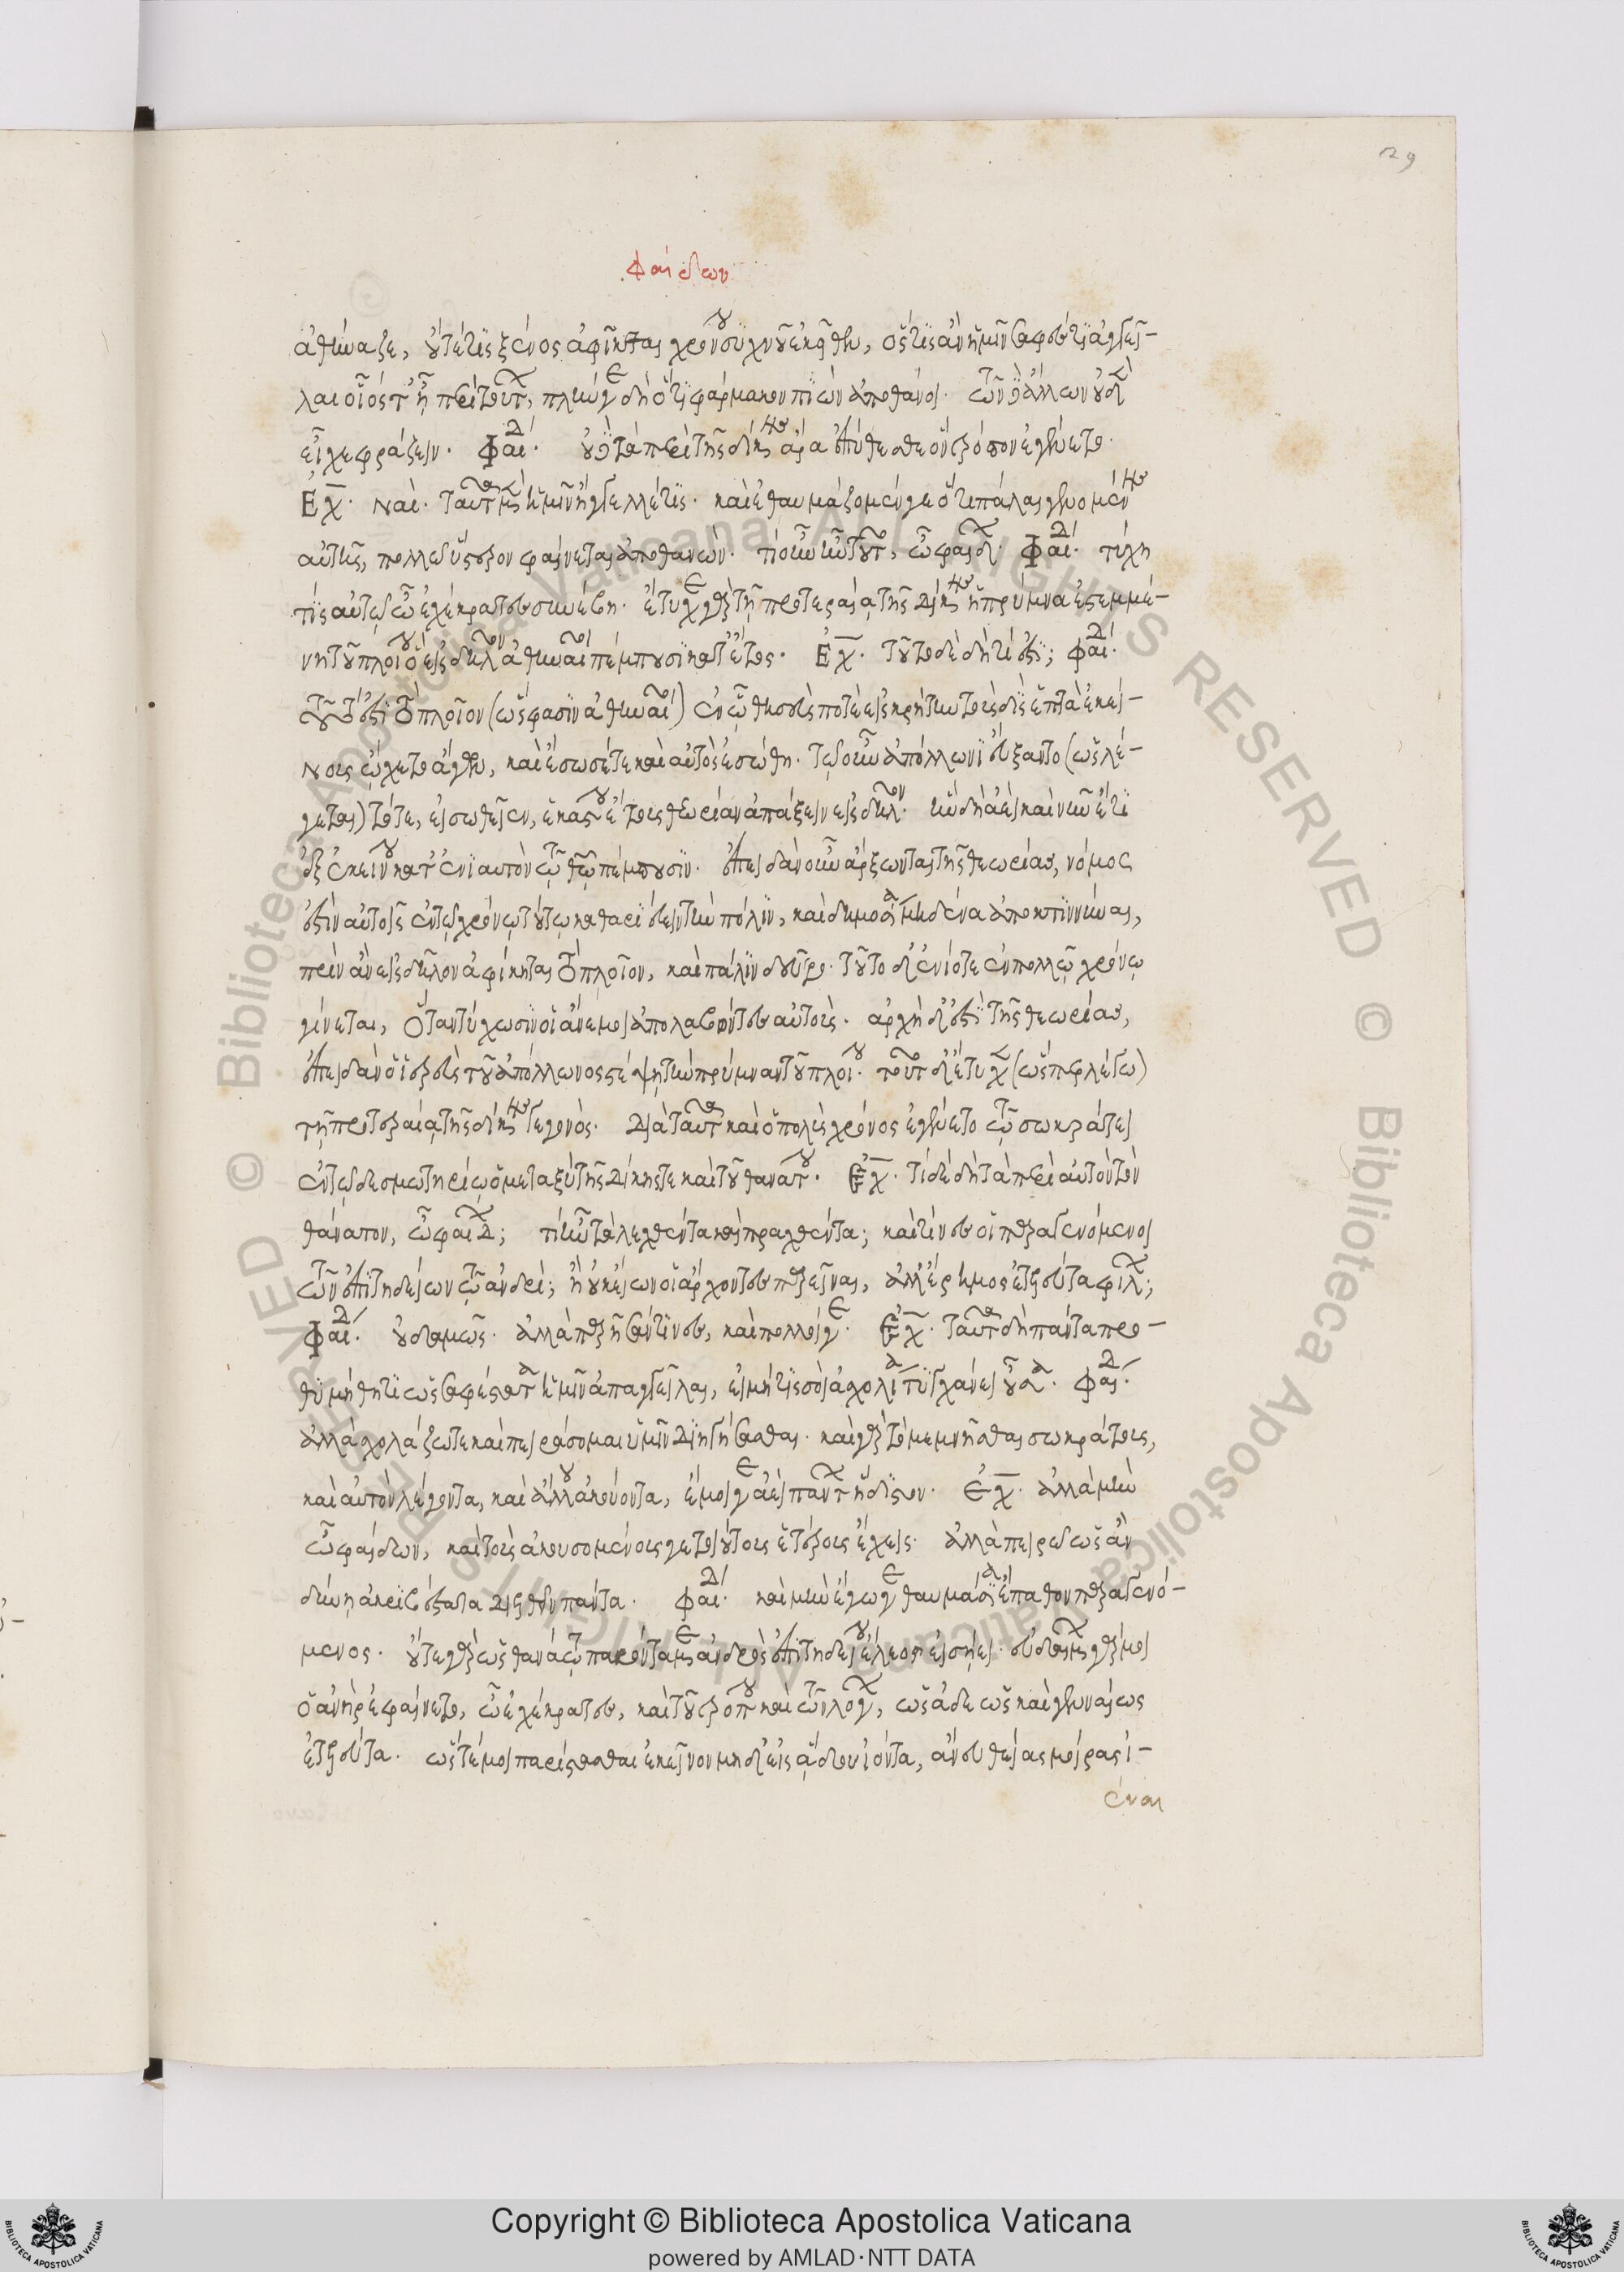 129
Φαίδων
ἀθήναζε, οὔτέ τις ξένος ἀφῖκται χρόνου συχνοῦ ἐκεῖθεν, ὅς τις ἂν ἡμῖν σαφές τι ἀγγεῖ-
λαι οἷός τ' ἦ περὶ τούτων, πλήν γε δὴ ὅτι φάρμακον πιὼν ἀποθάνοι. τῶν δὲ ἄλλων οὐδὲν
εἶχε φράζειν. Φαίδ. οὐδὲ τὰ περὶ τῆς δίκης ἄρα ἐπύθεσθε ὃν τρόπον ἐγένετο.
Ἐχ. Ναί. ταῦτα μὲν ἡμῖν ἤγγειλέ τις. καὶ ἐθαυμάζομέν γε ὅτι πάλαι γενομένης
αὐτῆς, πολλῷ ὕστερον φαίνεται ἀποθανών. τί οὖν ἦν τοῦτο, ὦ φαίδων. Φαίδ. τύχη
τις αὐτῷ ὦ ἐχέκρατες συνέβη. ἔτυχε γὰρ τῇ προτεραίᾳ τῆς δίκης ἡ πρύμνα ἐστεμμέ-
νη τοῦ πλοίου ὃ εἰς δῆλον ἀθηναῖοι πέμπουσι κατ' ἔτος. Ἐχ. τοῦτο δὲ δὴ τί ἐστι; Φαίδ.
τοῦτό ἐστι τὸ πλοῖον (ὥς φασιν ἀθηναῖοι) ἐν ᾧ θησεύς ποτε εἰς κρήτην τοὺς δὶς ἑπτὰ ἐκεί-
νους ᾤχετο ἄγων, καὶ ἔσωσέ τε καὶ αὐτὸς ἐσώθη. τῷ οὖν ἀπόλλωνι εὔξαντο (ὡς λέ-
γεται) τότε, εἰ σωθεῖεν, ἑκάστου ἔτους θεωρίαν ἀπάξειν εἰς δῆλον. ἣν δὴ ἀεὶ καὶ νῦν ἔτι
ἐξ ἐκείνου κατ' ἐνιαυτὸν τῷ θεῷ πέμπουσιν. ἐπειδὰν οὖν ἄρξωνται τῆς θεωρίας, νόμος
ἐστὶν αὐτοῖς ἐν τῷ χρόνῳ τούτῳ καθαρεύειν τὴν πόλιν, καὶ δημοσίᾳ μηδένα ἀποκτιννύναι,
πρὶν ἂν εἰς δῆλον ἀφίκηται τὸ πλοῖον, καὶ πάλιν δεῦρο. τοῦτο δ' ἐνίοτε ἐν πολλῷ χρόνῳ
γίνεται, ὅταν τύχωσιν οἱ ἄνεμοι ἀπολαβόντες αὐτούς. ἀρχὴ δ' ἐστὶ τῆς θεωρίας,
ἐπειδὰν ὁ ἱερεὺς τοῦ ἀπόλλωνος στέψῃ τὴν πρύμναν τοῦ πλοίου. τοῦτο δ' ἔτυχε (ὥσπερ λέγω)
τῇ προτεραίᾳ τῆς δίκης γεγονός. διὰ ταῦτα καὶ ὁ πολὺς χρόνος ἐγένετο τῷ σωκράτει
ἐν τῷ δεσμωτηρίῳ ὁ μεταξὺ τῆς δίκης τε καὶ τοῦ θανάτου. Ἐχ. τί δὲ δὴ τὰ περὶ αὐτὸν τὸν
θάνατον, ὦ φαίδων; τί ἦν τὰ λεχθέντα καὶ πραχθέντα; καὶ τίνες οἱ παραγενόμενοι
τῶν ἐπιτηδείων τῷ ἀνδρί; ἢ οὐκ εἴων οἱ ἄρχοντες παρεῖναι, ἀλλ' ἔρημος ἐτελεύτα φίλων;
Φαίδ. οὐδαμῶς. ἀλλὰ παρῆσάν τινες, καὶ πολλοί γε. Ἐχ. ταῦτα δὴ πάντα προ-
θυμήθητι ὡς σαφέστατα ἡμῖν ἀπαγγεῖλαι, εἰ μή τις σοι ἀσχολία τυγχάνει οὖσα. Φαίδ.
ἀλλὰ σχολάζω τε καὶ πειράσομαι ὑμῖν διηγήσασθαι. καὶ γὰρ τὸ μεμνῆσθαι σωκράτους,
καὶ αὐτὸν λέγοντα, καὶ ἄλλου ἀκούοντα, ἔμοιγε ἀεὶ πάντων ἥδιστον. Ἐχ. ἀλλὰ μὴν
ὦ φαίδων, καὶ τοὺς ἀκουσομένους γε τοιούτους ἑτέρους ἔχεις. ἀλλὰ πειρῶ ὡς ἂν
δύνῃ ἀκριβέστατα διελθεῖν πάντα. Φαίδ. καὶ μὴν ἔγωγε θαυμάσια ἔπαθον παραγενό-
μενος. οὔτε γὰρ ὡς θανάτῳ παρόντα με ἀνδρὸς ἐπιτηδείου ἔλεος εἰσῄει. εὐδαίμων γάρ μοι
ὁ ἀνὴρ ἐφαίνετο, ὦ ἐχέκρατες, καὶ τοῦ τρόπου καὶ τῶν λόγων, ὡς ἀδεῶς καὶ γενναίως
ἐτελεύτα. ὥστέ μοι παρίστασθαι ἐκεῖνον μηδ' εἰς ᾅδου ἰόντα, ἄνευ θείας μοίρας ἰ-
έναι
Copyright © Biblioteca Apostolica Vaticana
powered by AMLAD·NTT DATA